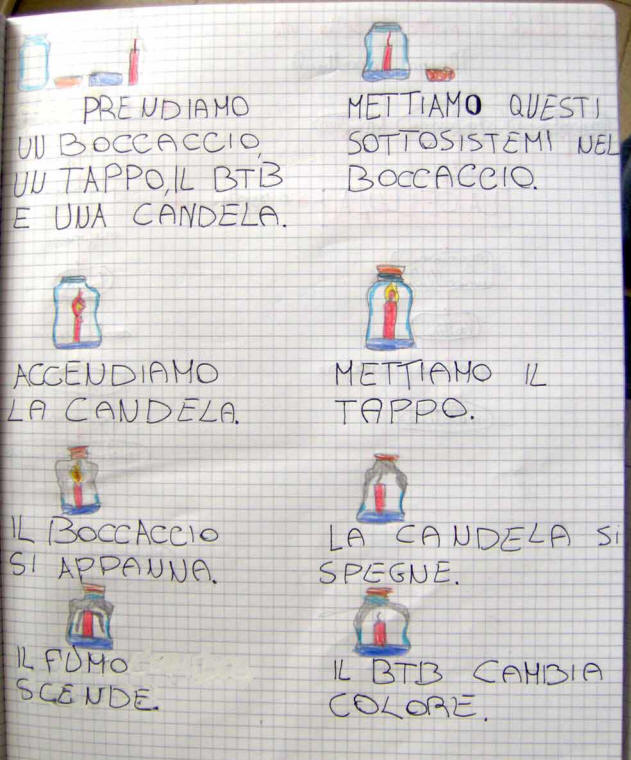 PRENDIAMO
UN BOCCACCIO,
UN TAPPO, IL BTB
E UNA CANDELA.
METTIAMO QUESTI
SOTTOSISTEMI NEL
BOCCACCIO.
ACCENDIAMO
LA CANDELA.
METTIAMO IL
TAPPO.
IL BOCCACCIO
SI APPANNA.
LA CANDELA SI
SPEGNE.
IL FUMO
SCENDE.
IL BTB CAMBIA
COLORE.